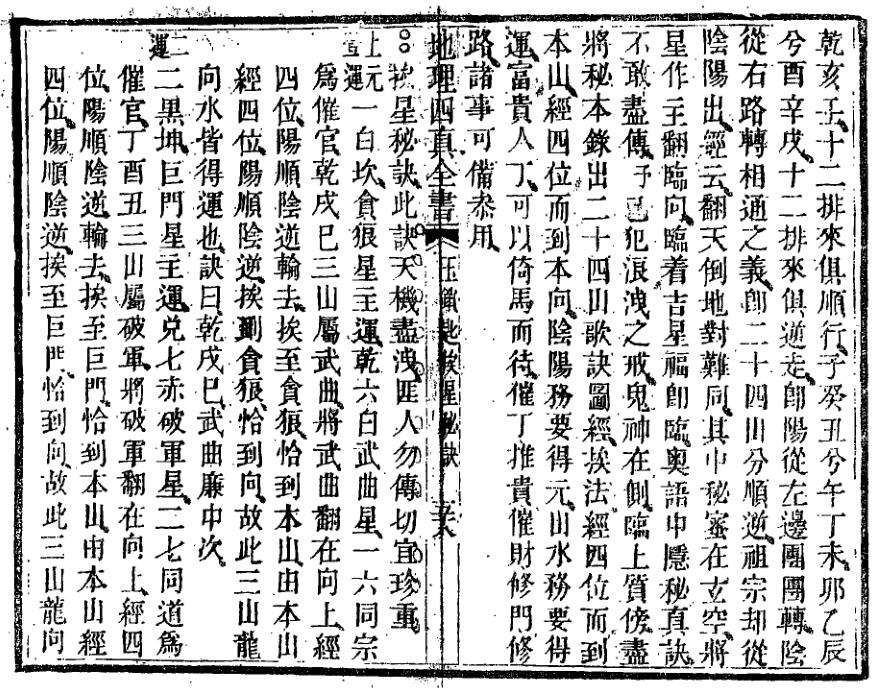 乾亥壬十二排來俱順行子癸丑兮午丁未卯乙辰
兮酉辛戌十二排來俱逆走卽陽從左邊團團轉陰
從右路轉相通之義卽二十四山分順逆祖宗却從
陰陽出經云翻天倒地對難同其中秘密在玄空將
星作主翻臨向臨着吉星福卽臨奧語中隱秘真訣
不敢盡傳予已犯浪洩之戒鬼神在側臨上質傍盡
將秘本錄出二十四山歌訣圖經挨法經四位而到
本山經四位而到本向陰陽務要得元山水務要得
運富貴人丁可以倚馬而待催丁推貴催財修門修
路諸事可備叅用
地理四真全書 玉鑰匙挨星秘訣
挨星秘訣此訣天機盡洩匪人勿傳切宜珍重
上元運一白坎貪狼星主運乾六白武曲星一六同宗
爲催官乾戌巳三山屬武曲將武曲翻在向上經
四位陽順陰逆輪去挨至貪狼恰到本山由本山
經四位陽順陰逆挨到貪狼恰到向故此三山龍
向水皆得運也訣曰乾戌巳武曲廉中次
二運二黑坤巨門星主運兌七赤破軍星二七同道爲
催官丁酉丑三山屬破軍將破軍翻在向上經四
位陽順陰逆輪去挨至巨門恰到本山由本山經
四位陽順陰逆挨至巨門恰到向故此三山龍向